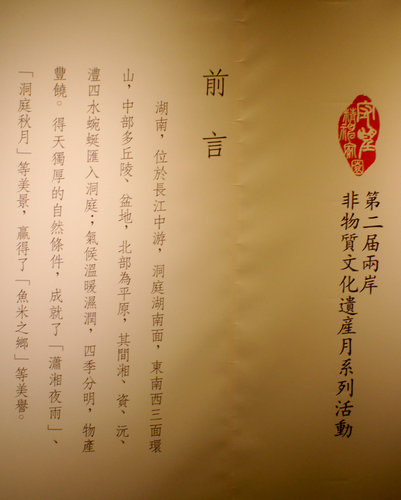 守望
精神家園
第二届兩岸
非物質文化遺產月系列活動
前言
湖南，位於長江中游，洞庭湖南面，東南西三面環
山，中部多丘陵、盆地，北部為平原，其間湘、資、沅、
澧四水蜿蜒匯入洞庭；氣候溫暖濕潤，四季分明，物產
豐饒。得天獨厚的自然條件，成就了「瀟湘夜雨」、
「洞庭秋月」等美景，贏得了「魚米之鄉」等美譽。